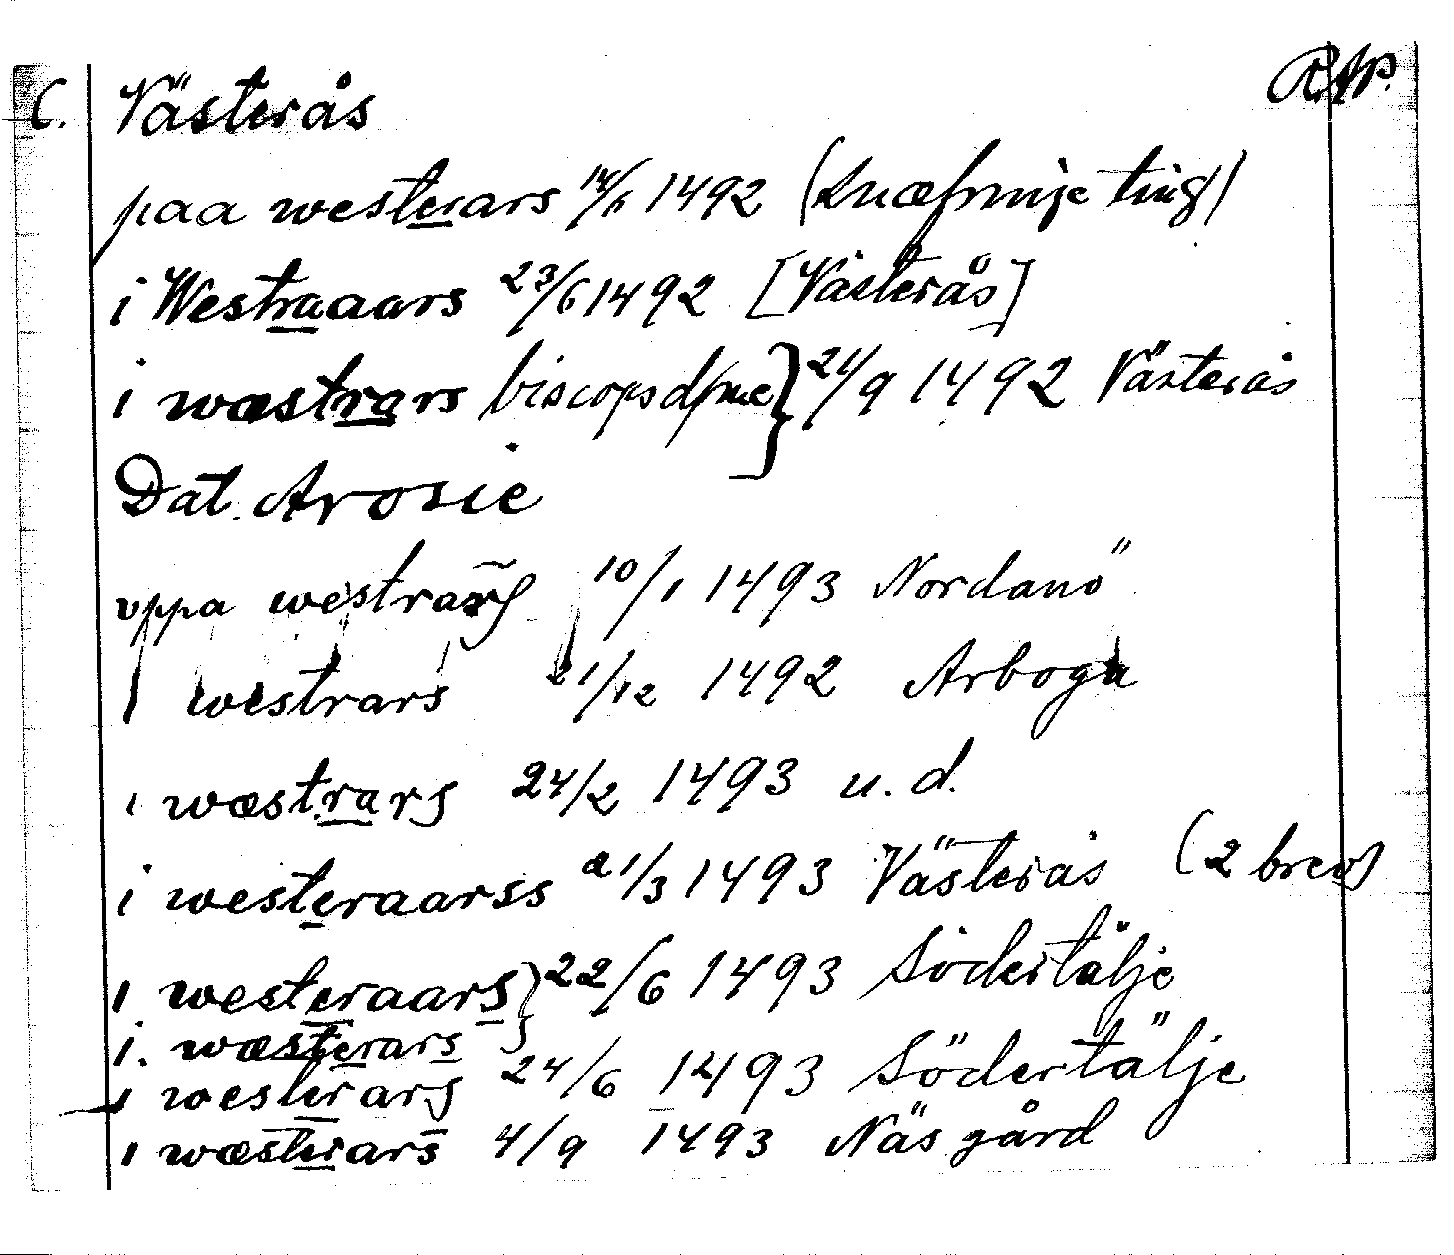 C. Västerås RAp.
paa westerars 14/6 1492 (Snæfringe ting)
i Westraaars 23/6 1492 [Västerås]
i wæstrars biscopsdøme } 21/9 1492 Västerås
Dat. Arosie
vppa westrars 10/1 1493 Nordanö
I westrars 21/12 1492 Arboga
i wæstrars 24/2 1493 u.d.
i westeraarss 21/3 1493 Västerås (2 brev)
i westeraars } 22/6 1493 Södertälje
i. wæsterars
i westerars 24/6 1493 Södertälje
i wæsterars 4/9 1493 Näs gård